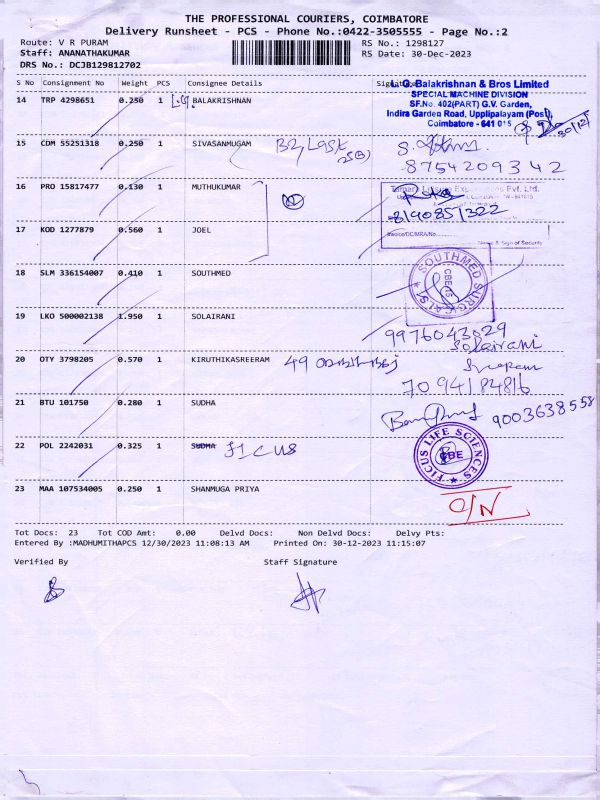 THE PROFESSIONAL COURIERS, COIMBATORE
Delivery Runsheet - PCS - Phone No.:0422-3505555 - Page No.:2
Route: V R PURAM RS No.: 1298127
Staff: ANANATHAKUMAR RS Date: 30-Dec-2023
DRS No.: DCJB129812702
S No Consignment No Weight PCS Consignee Details Signature
14 TRP 4298651 0.250 1 L.G. BALAKRISHNAN
L. G. Balakrishnan & Bros Limited
SPECIAL MACHINE DIVISION
SF.No. 402(PART) G.V. Garden,
Indira Garden Road, Upplipalayam (Post),
Coimbatore - 641 015
30/12/
15 CDM 55251318 0.250 1 SIVASANMUGAM
8754209342
16 PRO 15817477 0.130 1 MUTHUKUMAR
Pvt. Ltd.
8190851322
17 KOD 1277879 0.560 1 JOEL
Invoice/DC/MRA/No.
Name & Sign of Security
18 SLM 336154007 0.410 1 SOUTHMED
SOUTHMED SURGICALS
CBE-15
19 LKO 500002138 1.950 1 SOLAIRANI
9976043029
Solairani
20 OTY 3798205 0.570 1 KIRUTHIKASREERAM 49
7094184816
21 BTU 101750 0.280 1 SUDHA
9003638558
22 POL 2242031 0.325 1 SUDHA FICUS
FICUS LIFE SCIENCES
CBE
23 MAA 107534005 0.250 1 SHANMUGA PRIYA
O/N
Tot Docs: 23 Tot COD Amt: 0.00 Delvd Docs: Non Delvd Docs: Delvy Pts:
Entered By :MADHUMITHAPCS 12/30/2023 11:08:13 AM Printed On: 30-12-2023 11:15:07
Verified By Staff Signature